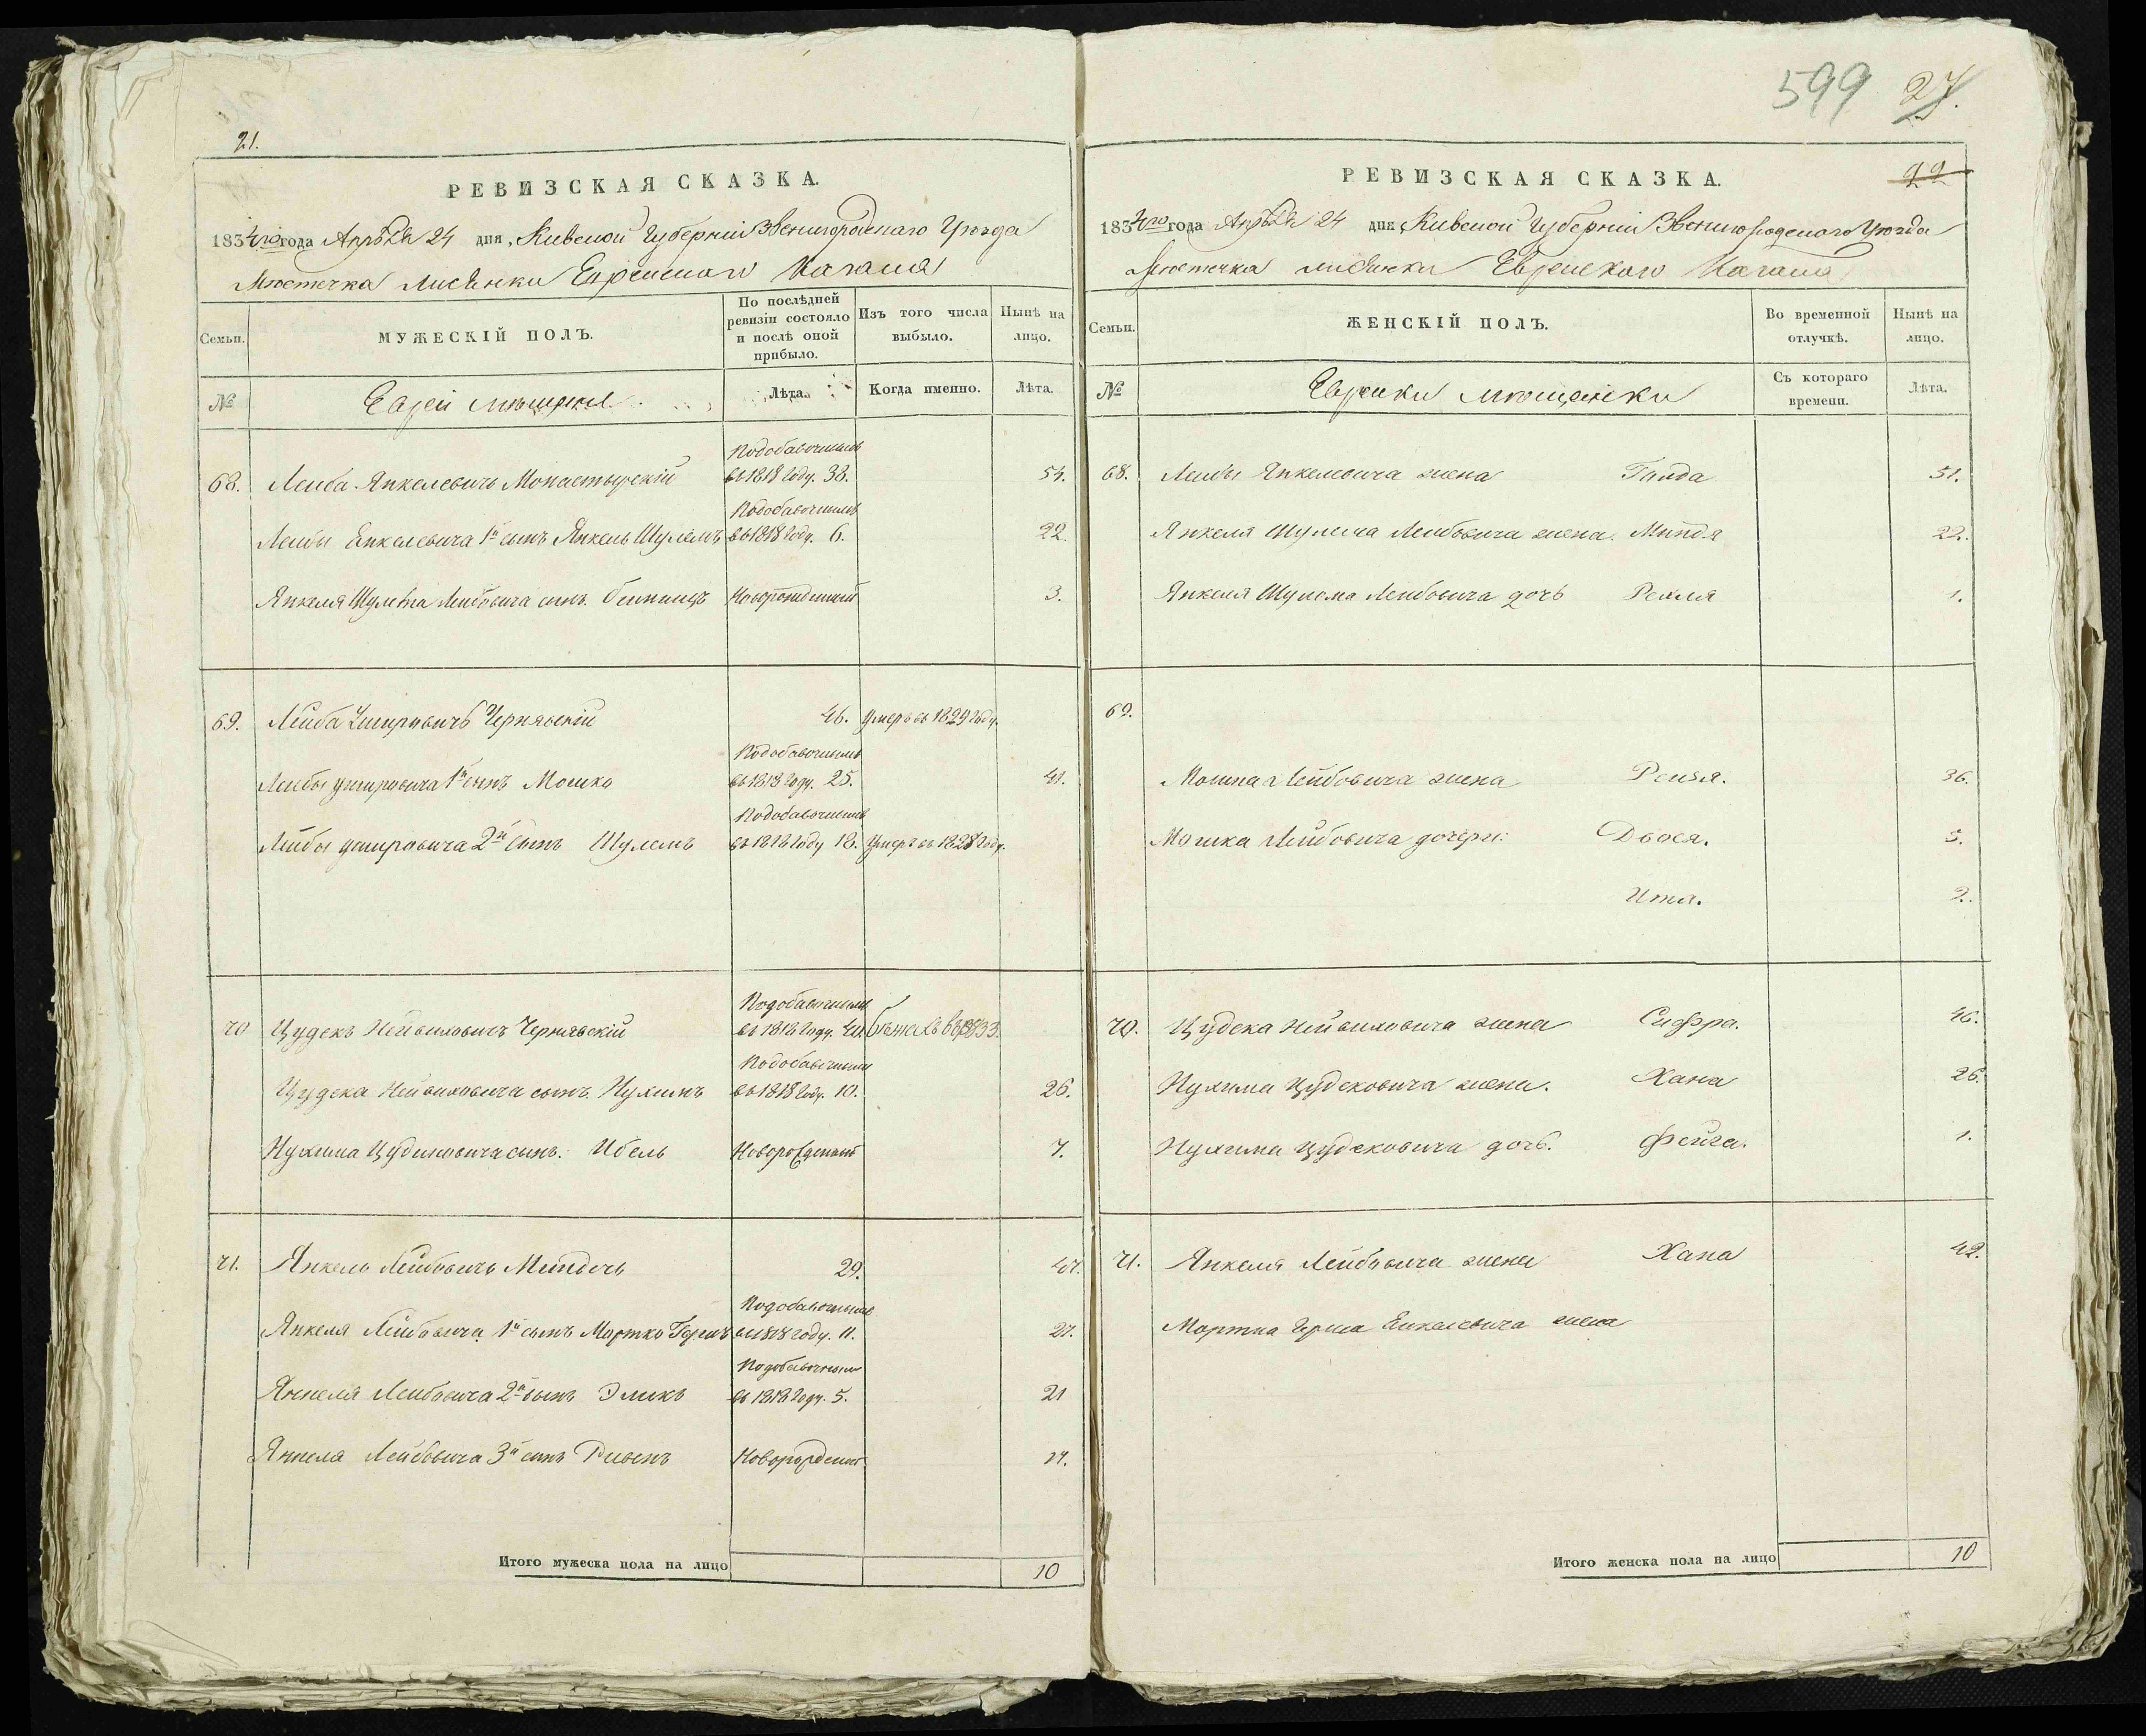 21.
РЕВИЗСКАЯ СКАЗКА.
1834го года Апрѣля 24 дня, Кивской Губерніи Звенигородскаго Уѣзда
Мѣстечка Лисянки Еврейскаго Кагала
Семьи.
МУЖЕСКІЙ ПОЛЪ.
По послѣдней ревизіи состояло и послѣ оной прибыло.
Изъ того числа выбыло.
Нынѣ на лицо.
№
Евреи мѣщане
Лѣта.
Когда именно.
Лѣта.
Подобавочнымъ
68. Лейба Янкелевичь Монастырскій въ 1818 году. 38. 54.
Подобавочнымъ
Лейбы Енкелевича 1й сынъ Янкель Шулемъ въ 1818 году. 6. 22.
Янкеля Шулема Лейбовича сынъ. Новорожденный 3.
69. Лейба Чернявскій 46. Умеръ въ 1829 году.
Подобавочнымъ
Лейбы 1й сынъ Мошко въ 1818 году. 25. 41.
Подобавочнымъ
Лейбы 2й сынъ Шулемъ въ 1818 году 18. Умеръ въ 1828 году.
Подобавочнымъ
70 Цудекъ Чернявскій въ 1818 году. бежалъ в 1833.
Подобавочнымъ
Цудека сынъ. Нухимъ въ 1818 году. 10. 26.
Нухима Цудиковича сынъ. Ибель Новорожденный 7.
71. Янкель Лейбовичь 29. 47.
Подобавочнымъ
Янкеля Лейбовича 1й сынъ Мортко Гершъ въ 1818 году. 11. 27.
Подобавочнымъ
Янкеля Лейбовича 2й сынъ Эликъ въ 1818 году. 5. 21
Янкеля Лейбовича 3й сынъ Рывенъ Новорожденный 14.
Итого мужеска пола на лицо 10
599 27.
22
РЕВИЗСКАЯ СКАЗКА.
1834го года Апрѣля 24 дня, Кивской Губерніи Звенигородскаго Уѣзда
Мѣстечка Лисянки Еврейскаго Кагала
Семьи.
ЖЕНСКІЙ ПОЛЪ.
Во временной отлучкѣ.
Нынѣ на лицо.
№
Еврейки мѣщанки
Съ котораго времени.
Лѣта.
68. Лейбы Янкелевича жена 51.
Янкеля Шулема Лейбовича жена. Миндя 22.
Янкеля Шулема Лейбовича дочь Рейзля 1.
69.
Мошка Лейбовича жена Рейзя. 36.
Мошка Лейбовича дочери: Двося. 5.
Ита. 2.
70. Цудека жена Сифра. 46.
Нухима Цудековича жена. Хана 26.
Нухима Цудековича дочь. Фейга. 1.
71. Янкеля Лейбовича жена Хана 42.
Мортка Герша Енкелевича жена
Итого женска пола на лицо 10